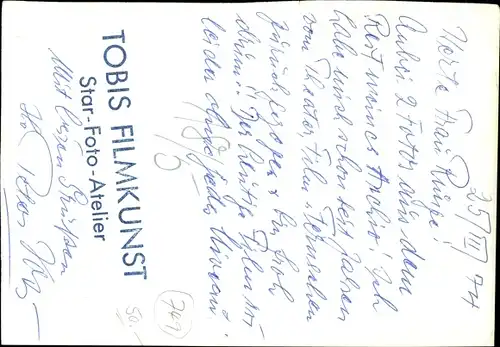 25/III 74
Werte Frau Krüpe!
Anbei 2 Fotos aus dem
Rest meines Archivs! Ich
habe mich schon seit Jahren
vom Theater, Film u. Fernsehen
zurückgezogen u. bin froh
drum! Der heutige Film ist
leider ohne jedes Niveau!
Mit besten Grüßen
Ihr
TOBIS FILMKUNST
Star-Foto-Atelier
749
50.-